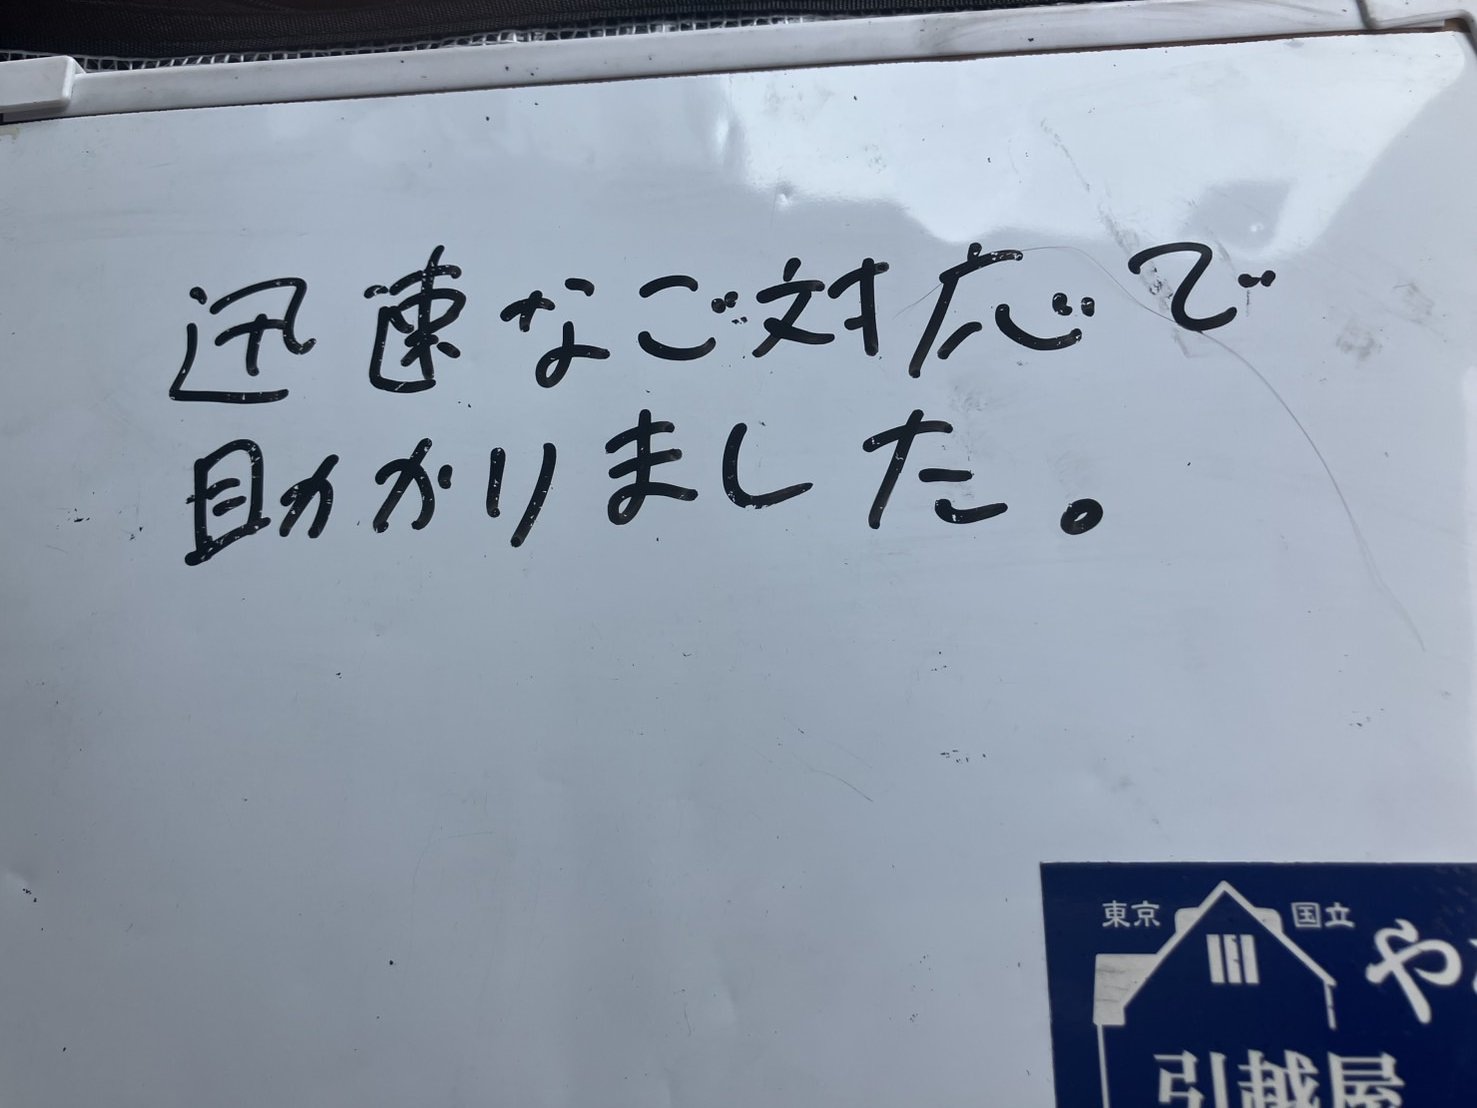 迅速なご対応で
助かりました。
東京 国立
や
引越屋